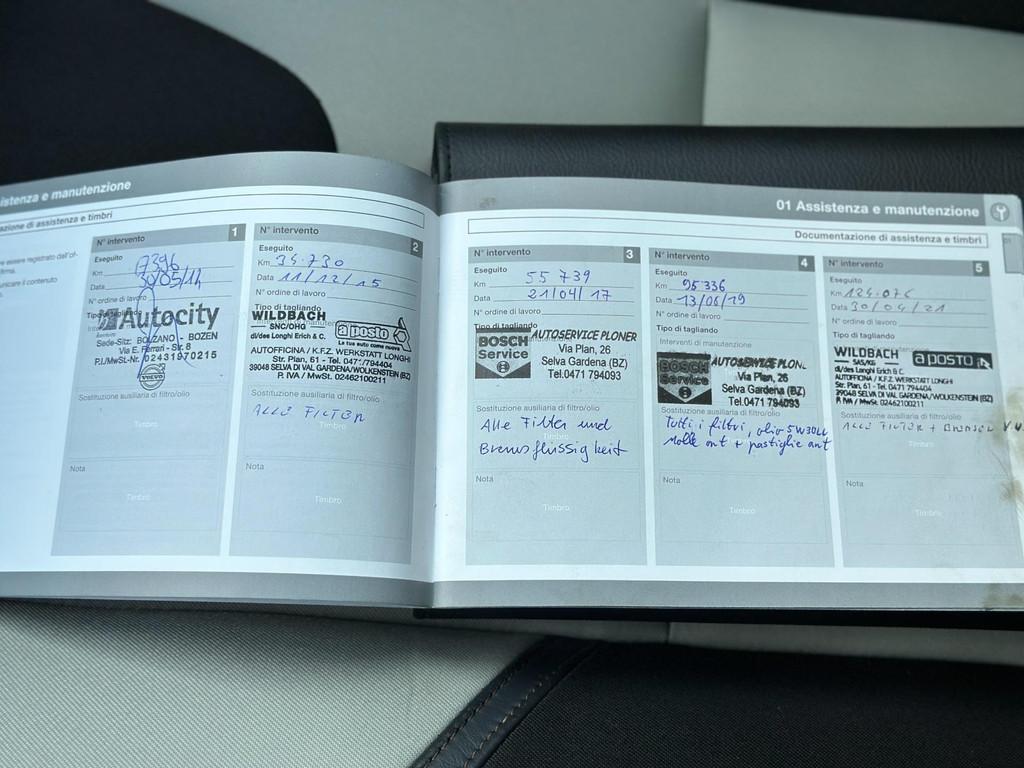 istenza e manutenzione
azione di assistenza e timbri
e essere registrato dall'of-
firma.
unicare il contenuto
N° intervento 1
Eseguito
Km 17396
Data 30/05/14
N° ordine di lavoro
Tipo di tagliando
Autocity
Sede-Sitz: BOLZANO - BOZEN
Via E. Ferrari - Str. 8
P.I./MwSt-Nr. 02431970215
VOLVO
Sostituzione ausiliaria di filtro/olio
Timbro
Nota
Timbro
N° intervento 2
Eseguito
Km 34.730
Data 11/12/15
N° ordine di lavoro
Tipo di tagliando
WILDBACH
SNC/OHG
di/des Longhi Erich & C.
a posto
La tua auto come nuova
AUTOFFICINA / K.F.Z. WERKSTATT LONGHI
Str. Plan, 61 - Tel. 0471/794404
39048 SELVA DI VAL GARDENA/WOLKENSTEIN (BZ)
P. IVA / MwSt. 02462100211
Sostituzione ausiliaria di filtro/olio
ALLE FILTER
Timbro
Nota
Timbro
01 Assistenza e manutenzione
Documentazione di assistenza e timbri
01
N° intervento 3
Eseguito
Km 55 739
Data 21/04/17
N° ordine di lavoro
Tipo di tagliando
BOSCH
Service
AUTOSERVICE PLONER
Via Plan, 26
Selva Gardena (BZ)
Tel.0471 794093
Sostituzione ausiliaria di filtro/olio
Alle Filter und
Bremsflüssigkeit
Nota
Timbro
N° intervento 4
Eseguito
Km 95 336
Data 13/06/19
N° ordine di lavoro
Tipo di tagliando
Interventi di manutenzione
BOSCH
Service
AUTOSERVICE PLON
Via Plan, 26
Selva Gardena (BZ)
Tel.0471 794093
Sostituzione ausiliaria di filtro/olio
Tutti i filtri, olio 5W30LL
Molle ant + pastiglie ant
Nota
Timbro
N° intervento 5
Eseguito
Km 124.076
Data 30/04/21
N° ordine di lavoro
Tipo di tagliando
WILDBACH
SAS/KG
di/des Longhi Erich & C.
a posto
AUTOFFICINA / K.F.Z. WERKSTATT LONGHI
Str. Plan, 61 - Tel. 0471 794404
39048 SELVA DI VAL GARDENA/WOLKENSTEIN (BZ)
P. IVA / MwSt. 02462100211
Sostituzione ausiliaria di filtro/olio
ALLE FILTER + BREMSEN
Timbro
Nota
Timbro